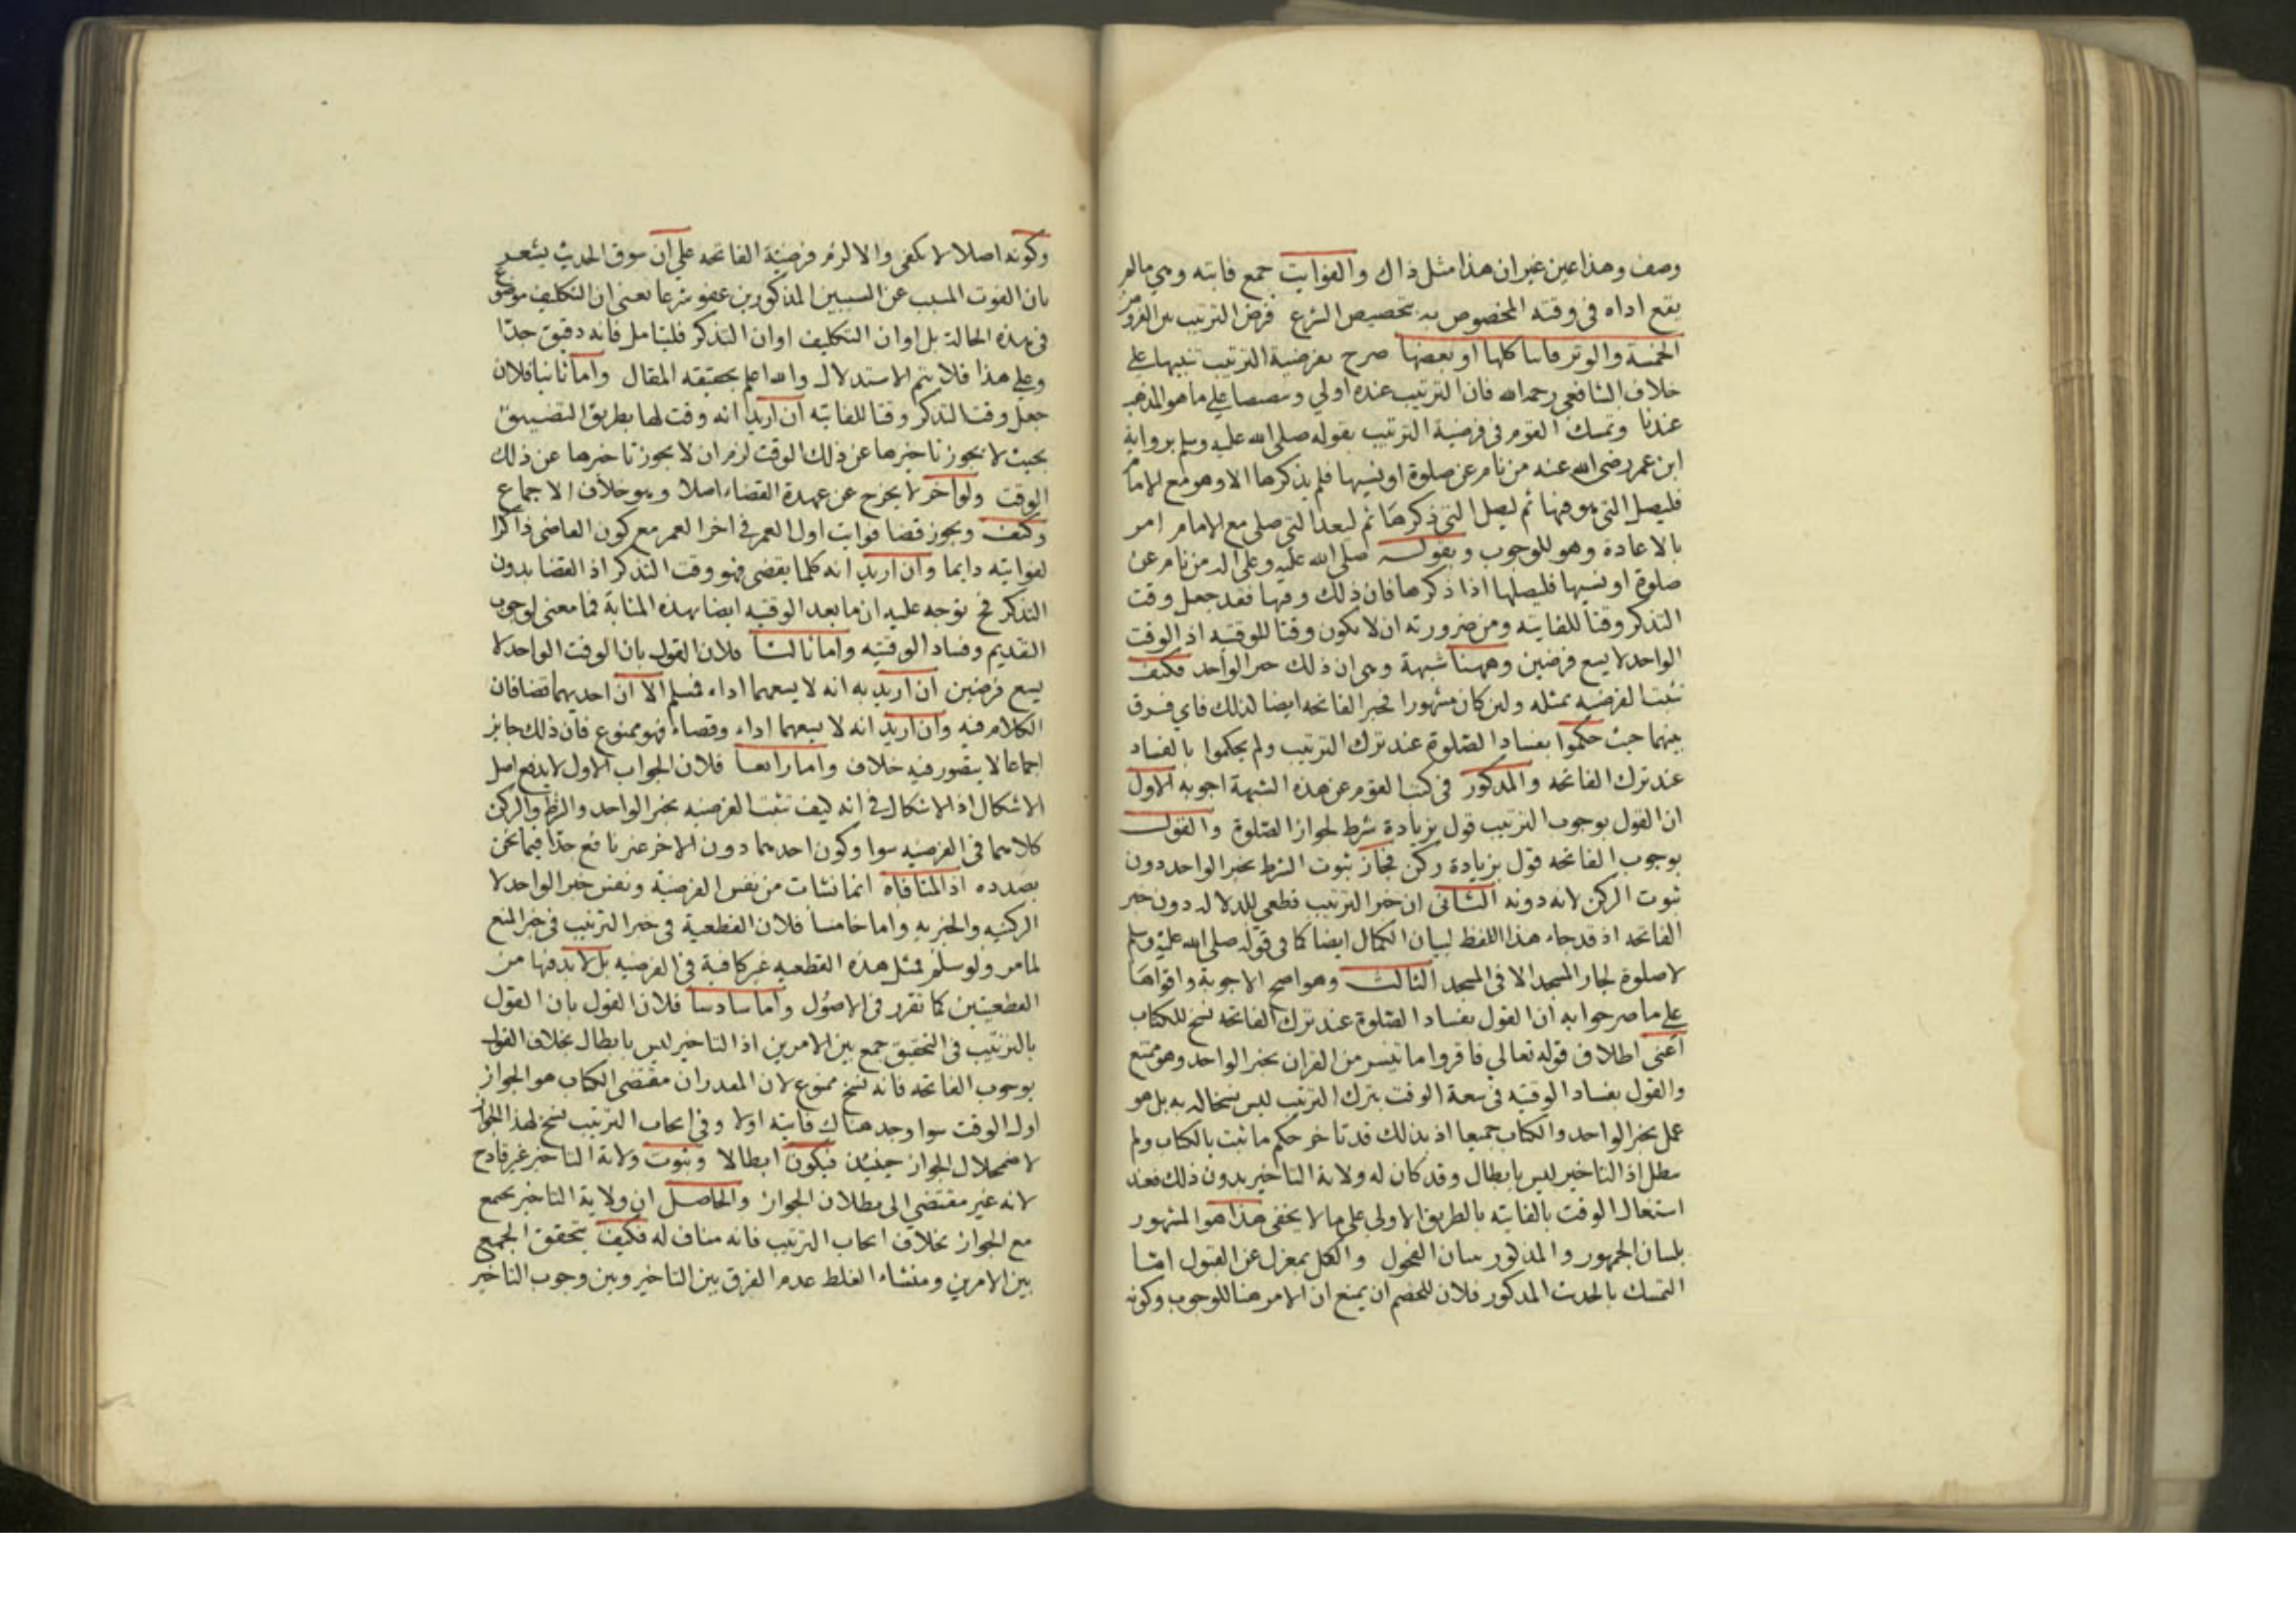 وصف وهذا عين غير ان هذا مثل ذاك والفوايت جمع فايته وهي مالم
يقع اداه في وقته المخصوص به بتخصيص الشرع فرض الترتيب بين الفروض
الخمسة والوتر فايتا كلها او بعضها صرح بفرضية الترتيب تنبيها على
خلاف الشافعي رحمه الله فان الترتيب عنده اولي وتنصيصا على ما هو المذهب
عندنا وتمسك القوم في فرضية الترتيب بقوله صلى الله عليه وسلم برواية
ابن عمر رضي الله عنه من نام عن صلوة او نسيها فلم يذكرها الا وهو مع الامام
فليصل التي هو فيها ثم ليصل التي ذكرها ثم ليعد التي صلى مع الامام امر
بالاعادة وهو للوجوب وبقوله صلى الله عليه وعلى اله من نام عن
صلوة او نسيها فليصلها اذا ذكرها فان ذلك وقتها فقد جعل وقت
التذكر وقتا للفايته ومن ضرورته ان لا يكون وقتا للوقتيه اذ الوقت
الواحد لا يسع فرضين وههنا شبهة وهى ان ذلك خبر الواحد فكيف
تثبت الفرضيه بمثله ولين كان مشهورا فخبر الفاتحه ايضا كذلك فاي فرق
بينهما حيث حكموا بفساد الصلوة عند ترك الترتيب ولم يحكموا بالفساد
عند ترك الفاتحه والمذكور في كتب القوم عن هذه الشبهة اجوبه الاول
ان القول بوجوب الترتيب قول بزيادة شرط لجواز الصلوة والقول
بوجوب الفاتحه قول بزيادة ركن فجاز ثبوت الشرط بخبر الواحد دون
ثبوت الركن لانه دونه الثاني ان خبر الترتيب قطعي للدلاله دون خبر
الفاتحه اذ قد جاء هذا اللفظ لبيان الكمال ايضا كما في قوله صلى الله عليه وسلم
لا صلوة لجار المسجد الا في المسجد الثالث وهو اصح الاجوبة واقواها
على ما صرحوا به ان القول بفساد الصلوة عند ترك الفاتحه نسخ للكتاب
اعني اطلاق قوله تعالي فاقروا ما تيسر من القران بخبر الواحد وهو ممتنع
والقول بفساد الوقتيه في سعة الوقت بترك الترتيب ليس نسخا له به بل هو
عمل بخبر الواحد والكتاب جميعا اذ بذلك قد تاخر حكم ما ثبت بالكتاب ولم
يبطل اذ التاخير ليس بابطال وقد كان له ولاية التاخير بدون ذلك فعند
استغال الوقت بالفايته بالطريق الاولى على ما لا يخفى هذا هو المشهور
بلسان الجمهور والمذكور بيان الفحول والكل بمعزل عن القبول امّا
التمسك بالحديث المذكور فلان للخصم ان يمنع ان الامر هنا للوجوب وكونه
وكونه اصلا لا يكفى والا لزم فرضية الفاتحه على ان سوق الحديث يشعر
بان الفوت المسبب عن السببين المذكورين عفو شرعا يعني ان التكليف موضوع
في هذه الحالة بل اوان التكليف اوان التذكر فليتامل فانه دقيق جدّا
وعلى هذا فلا يتم الاستدلال والله اعلم بحقيقة المقال واما ثانيا فلان
جعل وقت التذكر وقتا للفايته ان اريد انه وقت لها بطريق التضييق
بحيث لا يجوز تاخيرها عن ذلك الوقت لزم ان لا يجوز تاخيرها عن ذلك
الوقت ولو اخر لا يخرج عن عهدة القضاء اصلا وهو خلاف الاجماع
وكيف ويجوز قضا فوايت اول العمر في اخر العمر مع كون القاضي ذاكرا
لفوايته دايما وان اريد انه كلما يقضى فهو وقت التذكر اذ القضا بدون
التذكر فح يتوجه عليه ان ما بعد الوقتيه ايضا بهذه المثابة فما معنى لوجوب
التقديم وفساد الوقتيه واما ثالثا فلان القول بان الوقت الواحد لا
يسع فرضين ان اريد به انه لا يسعهما اداء فمسلم الا ان احديهما قضا فان
الكلام فيه وان اريد انه لا يسعهما اداء وقضاء فهو ممنوع فان ذلك جايز
اجماعا لا يتصور فيه خلاف واما رابعا فلان الجواب الاول لا يدفع اصل
الاشكال اذ الاشكال في انه كيف تثبت الفرضيه بخبر الواحد والشرط والركن
كلاهما في الفرضيه سوا وكون احدهما دون الاخر غير نافع جدّا فيما نحن
بصدده اذ المنافاة انما نشات من نفس الفرضية ونفس خبر الواحد لا
الركنيه والخبريه واما خامسا فلان القطعية في خبر الترتيب في خبر المنع
لما مر ولو سلم فمثل هذه القطعيه غير كافية في الفرضيه بل لا بد فيها من
القطعيتين كما تقرر في الاصول واما سادسا فلان القول بان القول
بالترتيب في التحقيق جمع بين الامرين اذ التاخير ليس بابطال بخلاف القول
بوجوب الفاتحه فانه نسخ ممنوع لان المقدران مقتضى الكتاب هو الجواز
اول الوقت سوا وجد هناك فايته اولا وفي ايجاب الترتيب نسخ لهذا الجواز
لاضمحلال الجواز حينئذ فيكون ابطالا وثبوت ولاية التاخير غير قادح
لانه غير مقتضي الى بطلان الجواز والحاصل ان ولاية التاخير يجمع
مع الجواز بخلاف ايجاب الترتيب فانه مناف له فكيف يتحقق الجمع
بين الامرين ومنشاء الغلط عدم الفرق بين التاخير وبين وجوب التاخير